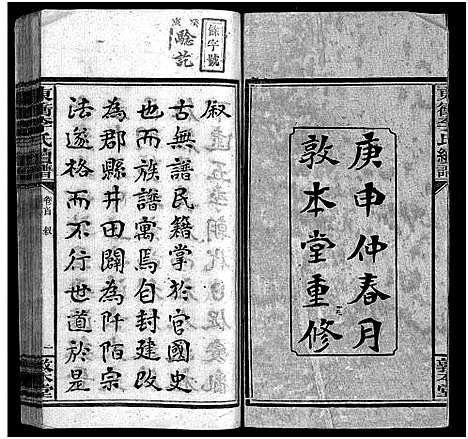 庚申仲春月
敦本堂重修
東衝李氏續譜
敦本堂
餘字號
驗訖
敘
古無譜民籍掌於官國史
也而族譜寓焉自封建改
為郡縣井田闢為阡陌宗
法遂格而不行世道於是
卷首 敘
一
敦本堂